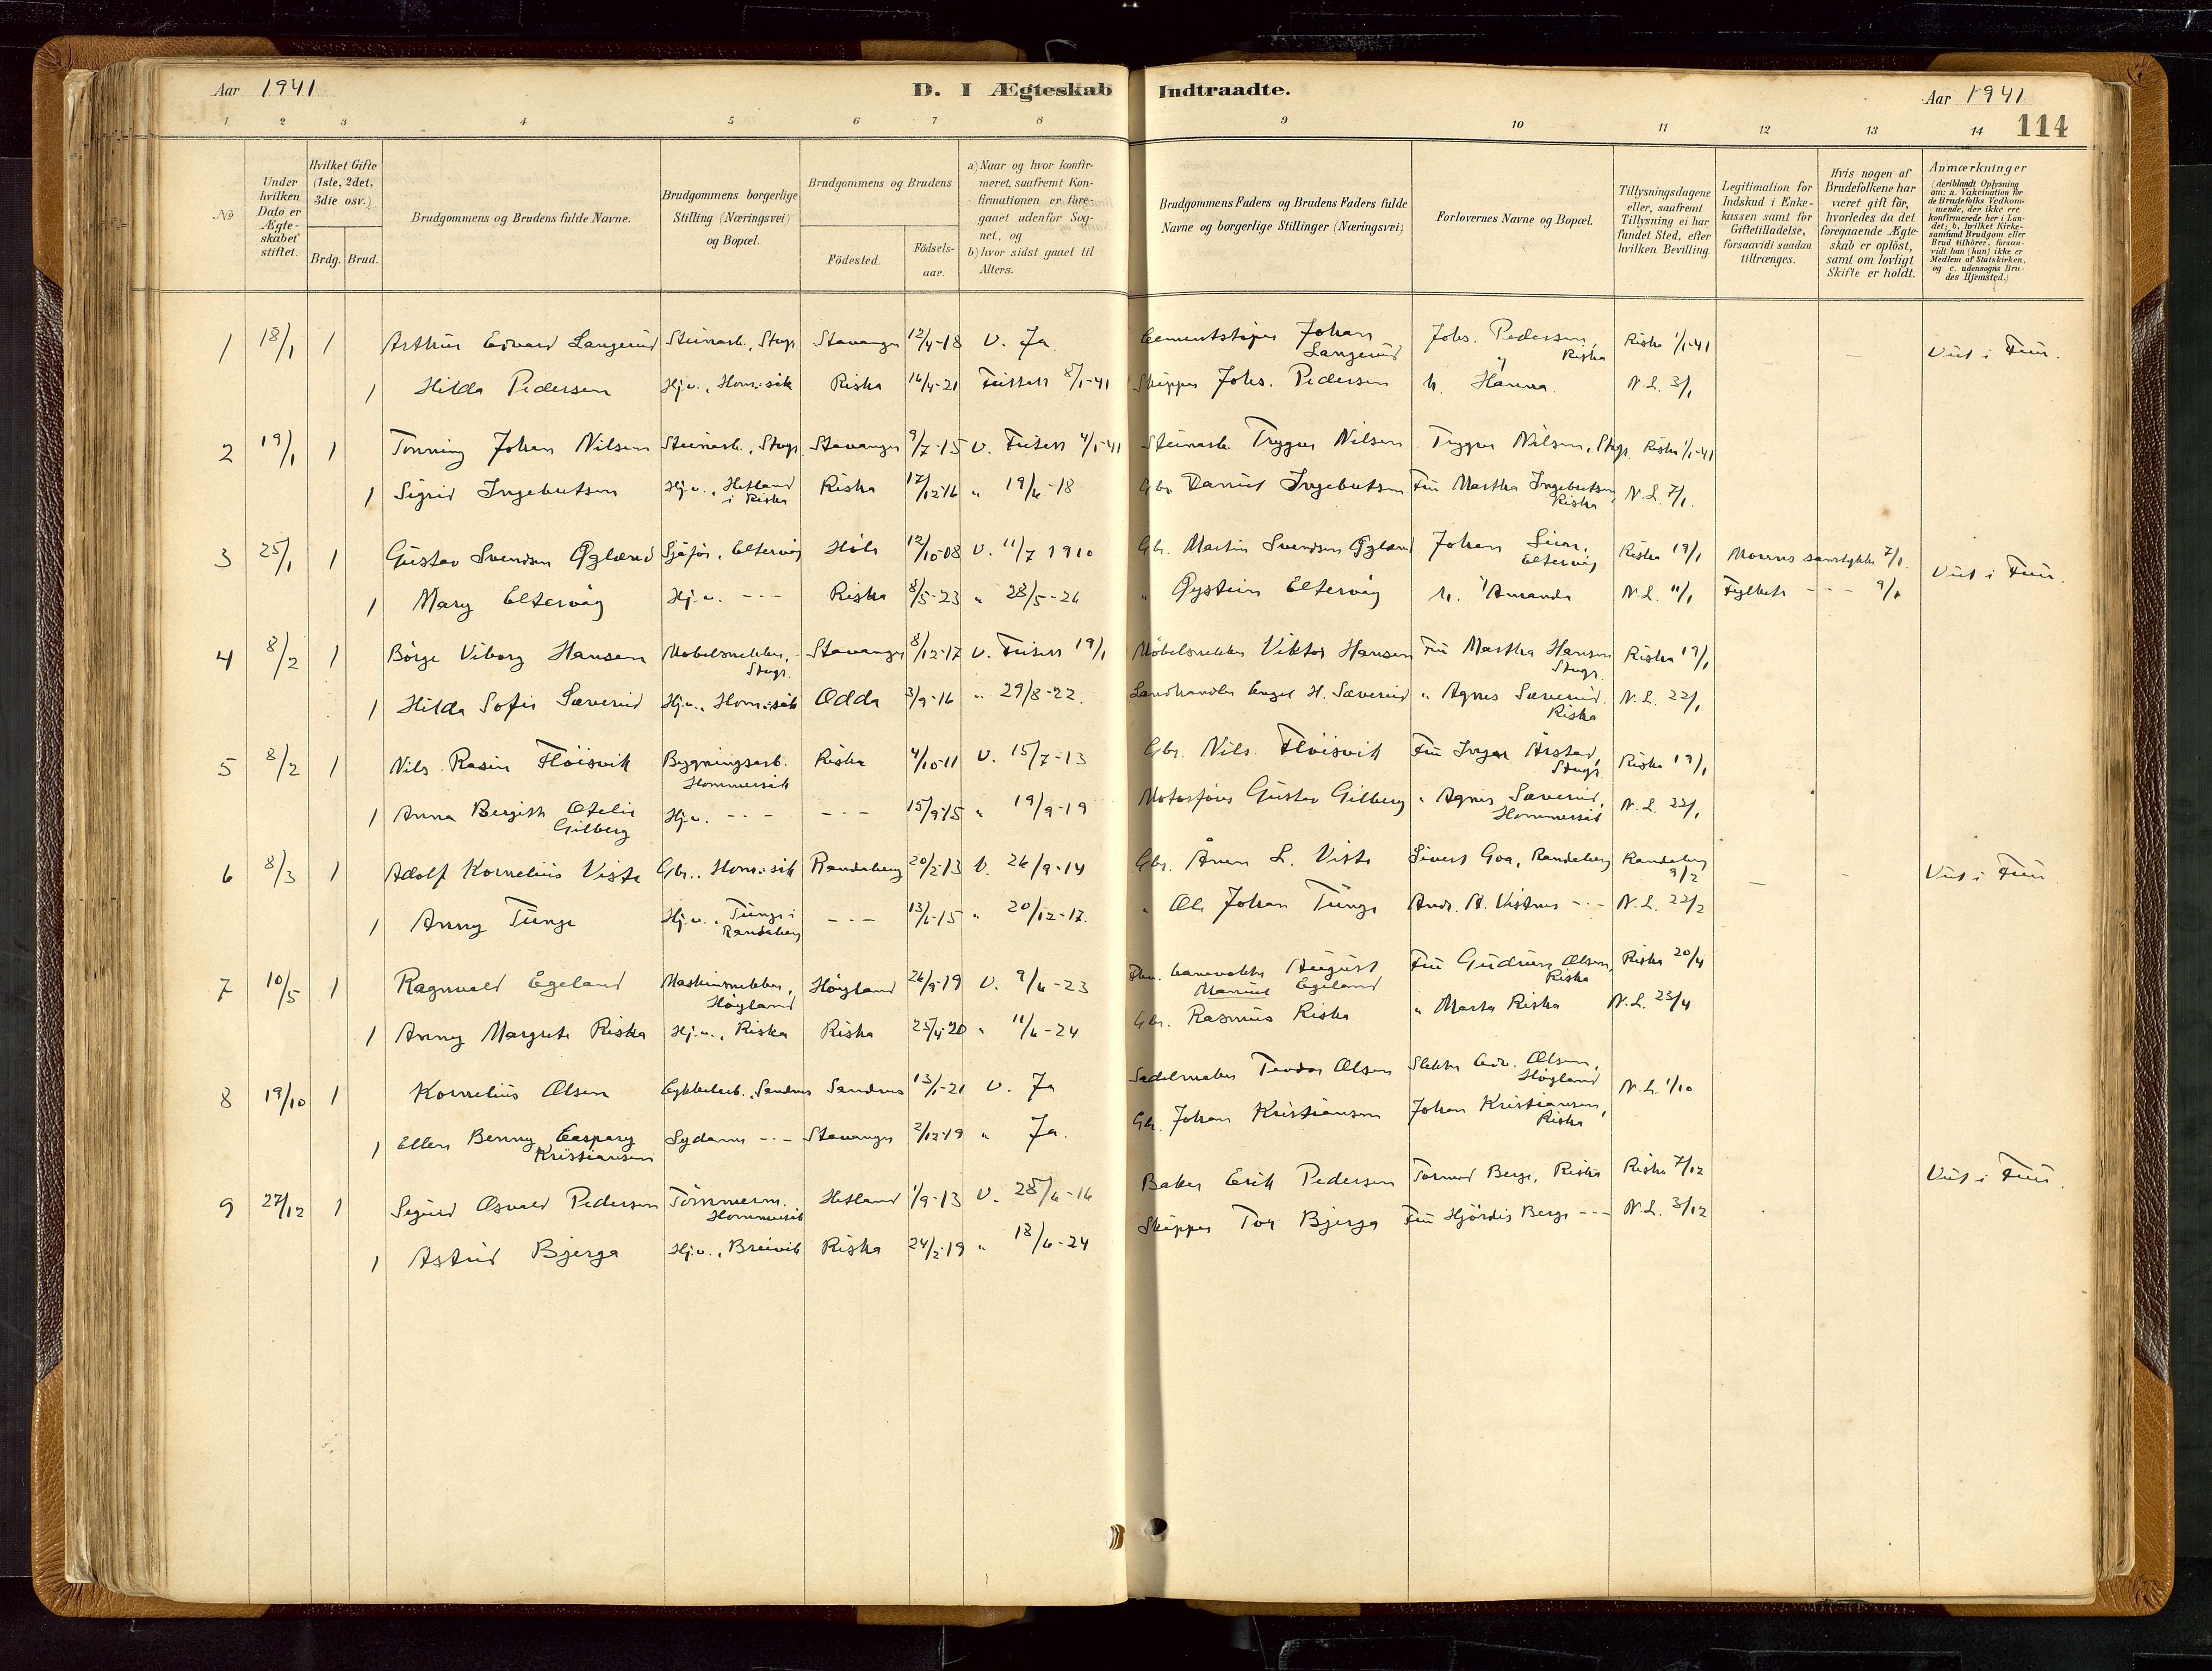 Aar 1941
D. I Ægteskab Indtraadte.
Aar 1941
114
1 2 3 4 5 6 7 8 9 10 11 12 13 14
No
Under hvilken Dato er Ægteskabet stiftet.
Hvilket Gifte (1ste, 2det, 3die osv.)
Brdg. Brud.
Brudgommens og Brudens fulde Navne.
Brudgommens borgerlige Stilling (Næringsvei) og Bopæl.
Brudgommens og Brudens
Födested.
Födselsaar.
a) Naar og hvor konfirmeret, saafremt Konfirmationen er foregaaet udenfor Sognet, og
b) hvor sidst gaaet til Alters.
Brudgommens Faders og Brudens Faders fulde Navne og borgerlige Stillinger (Næringsvei)
Forlovernes Navne og Bopæl.
Tillysningsdagene eller, saafremt Tillysning ei har fundet Sted, efter hvilken Bevilling.
Legitimation for Indskud i Enkekassen samt for Giftetilladelse, forsaavidt saadan tiltrænges.
Hvis nogen af Brudefolkene har været gift för, hvorledes da det foregaaende Ægteskab er oplöst, samt om lovligt Skifte er holdt.
Anmærkninger (deriblandt Oplysning om: a. Vakcination for de Brudefolks Vedkommende, der ikke ere konfirmerede her i Landet; b. hvilket Kirkesamfund Brudgom eller Brud tilhörer, forsaavidt han (hun) ikke er Medlem af Statskirken, og c. udensogns Brudes Hjemsted.)
1 18/1 1 Arthur Edvard Langerud Steinarb., Stvgr. Stavanger 12/4-18 V. Ja. Cementstøper Johan Langerud Johs. Pedersen, Riska Riska 1/1-41 Viet i Fru.
1 Hilda Pedersen Hj.v., Hom.såk Riska 16/4-21 8/1-41 Skipper Johs. Pedersen h. " Hanna. N.L. 3/1
2 19/1 1 Tonning Johan Nilsen Steinarb., Stvgr. Stavanger 9/7-15 V. 4/1-41 Steinarb. Trygve Nilsen Trygve Nilsen, Stvgr. Riska 1/1-41
1 Sigrid Ingebretsen Hj.v., Hetland i Riska Riska 17/12-16 " 19/6-18 Gbr. Daniel Ingebretsen Fru Martha Ingebretsen, Riska N.L. 7/1.
3 25/1 1 Gustav Svendsen Øglænd Sjåfør, Eltervåg Høle 12/10-08 V. 11/7 1910 Gbr. Martin Svendsen Øglænd Johan Lura, Eltervåg Riska 19/1 Morens samtykke 7/1. Viet i Fru.
1 Mary Eltervåg Hj.v. - - - Riska 8/5-23 " 28/5-26 " Øystein Eltervåg h. " Amanda N.L. 11/1 Fylkets - - - 9/1
4 8/2 1 Börge Viborg Hansen Møbelsnekker, Stvgr. Stavanger 8/12-17 V. 19/1 Møbelsnekker Viktor Hansen Fru Martha Hansen Stvgr. Riska 19/1
1 Hilda Sofie Sæverud Hj.v., Hom.såk Odda 3/9-16 " 29/8-22. Landhandler Engel H. Sæverud " Agnes Sæverud. Riska N.L. 22/1
5 8/2 1 Nils Rasin Fløisvik Bygningsarb. Hommersåk Riska 4/10-11 V. 15/7-13 Gbr. Nils Fløisvik Fru Inger Årstad, Stvgr. Riska 19/1
1 Anna Bergith Otelie Gilberg Hj.v. - - - - - - 15/9-15 " 19/9-19 Motorfører Gustav Gilberg " Agnes Sæverud, Hommersåk N.L. 22/1
6 8/3 1 Adolf Kornelius Viste Gbr., Hom.såk Randaberg 20/2-13 V. 26/9-14 Gbr. Ånen L. Viste Sivert Goa, Randaberg Randaberg 9/2 Viet i Fru.
1 Anny Tunge Hj.v., Tunge i Randaberg - - - 13/6-15 " 20/12-17. " Ole Johan Tunge Andr. A. Vistnes - - - N.L. 22/2
7 10/5 1 Ragnvald Egeland Maskinsnekker, Høyland Høyland 26/9-19 V. 9/6-23 August Egeland Fru Gudrun Olsen, Riska Riska 20/4
1 Anny Margrete Riska Hj.v., Riska Riska 25/4-20 " 11/6-24 Gbr. Rasmus Riska " Marta Riska N.L. 23/4
8 19/10 1 Kornelius Olsen Cykkelarb., Sandnes Sandnes 13/1-21 V. Ja Sadelmaker Teodor Olsen Olsen, Høyland N.L. 1/10
1 Ellen Benny Caspary Kristiansen Sydame - - - Stavanger 2/12-19 " Ja. Gbr. Johan Kristiansen Johan Kristiansen, Riska
9 27/12 1 Sigurd Osvald Pedersen Tømmerm. Hommersåk Hetland 1/9-13 V. 28/6-16 Baker Erik Pedersen Tormod Berge, Riska Riska 7/12 Viet i Fru.
1 Astrid Bjerga Hj.v., Breivik Riska 24/2-19 " 18/6-24 Skipper Tor Bjerga Fru Hjørdis Berge - - - N.L. 3/12